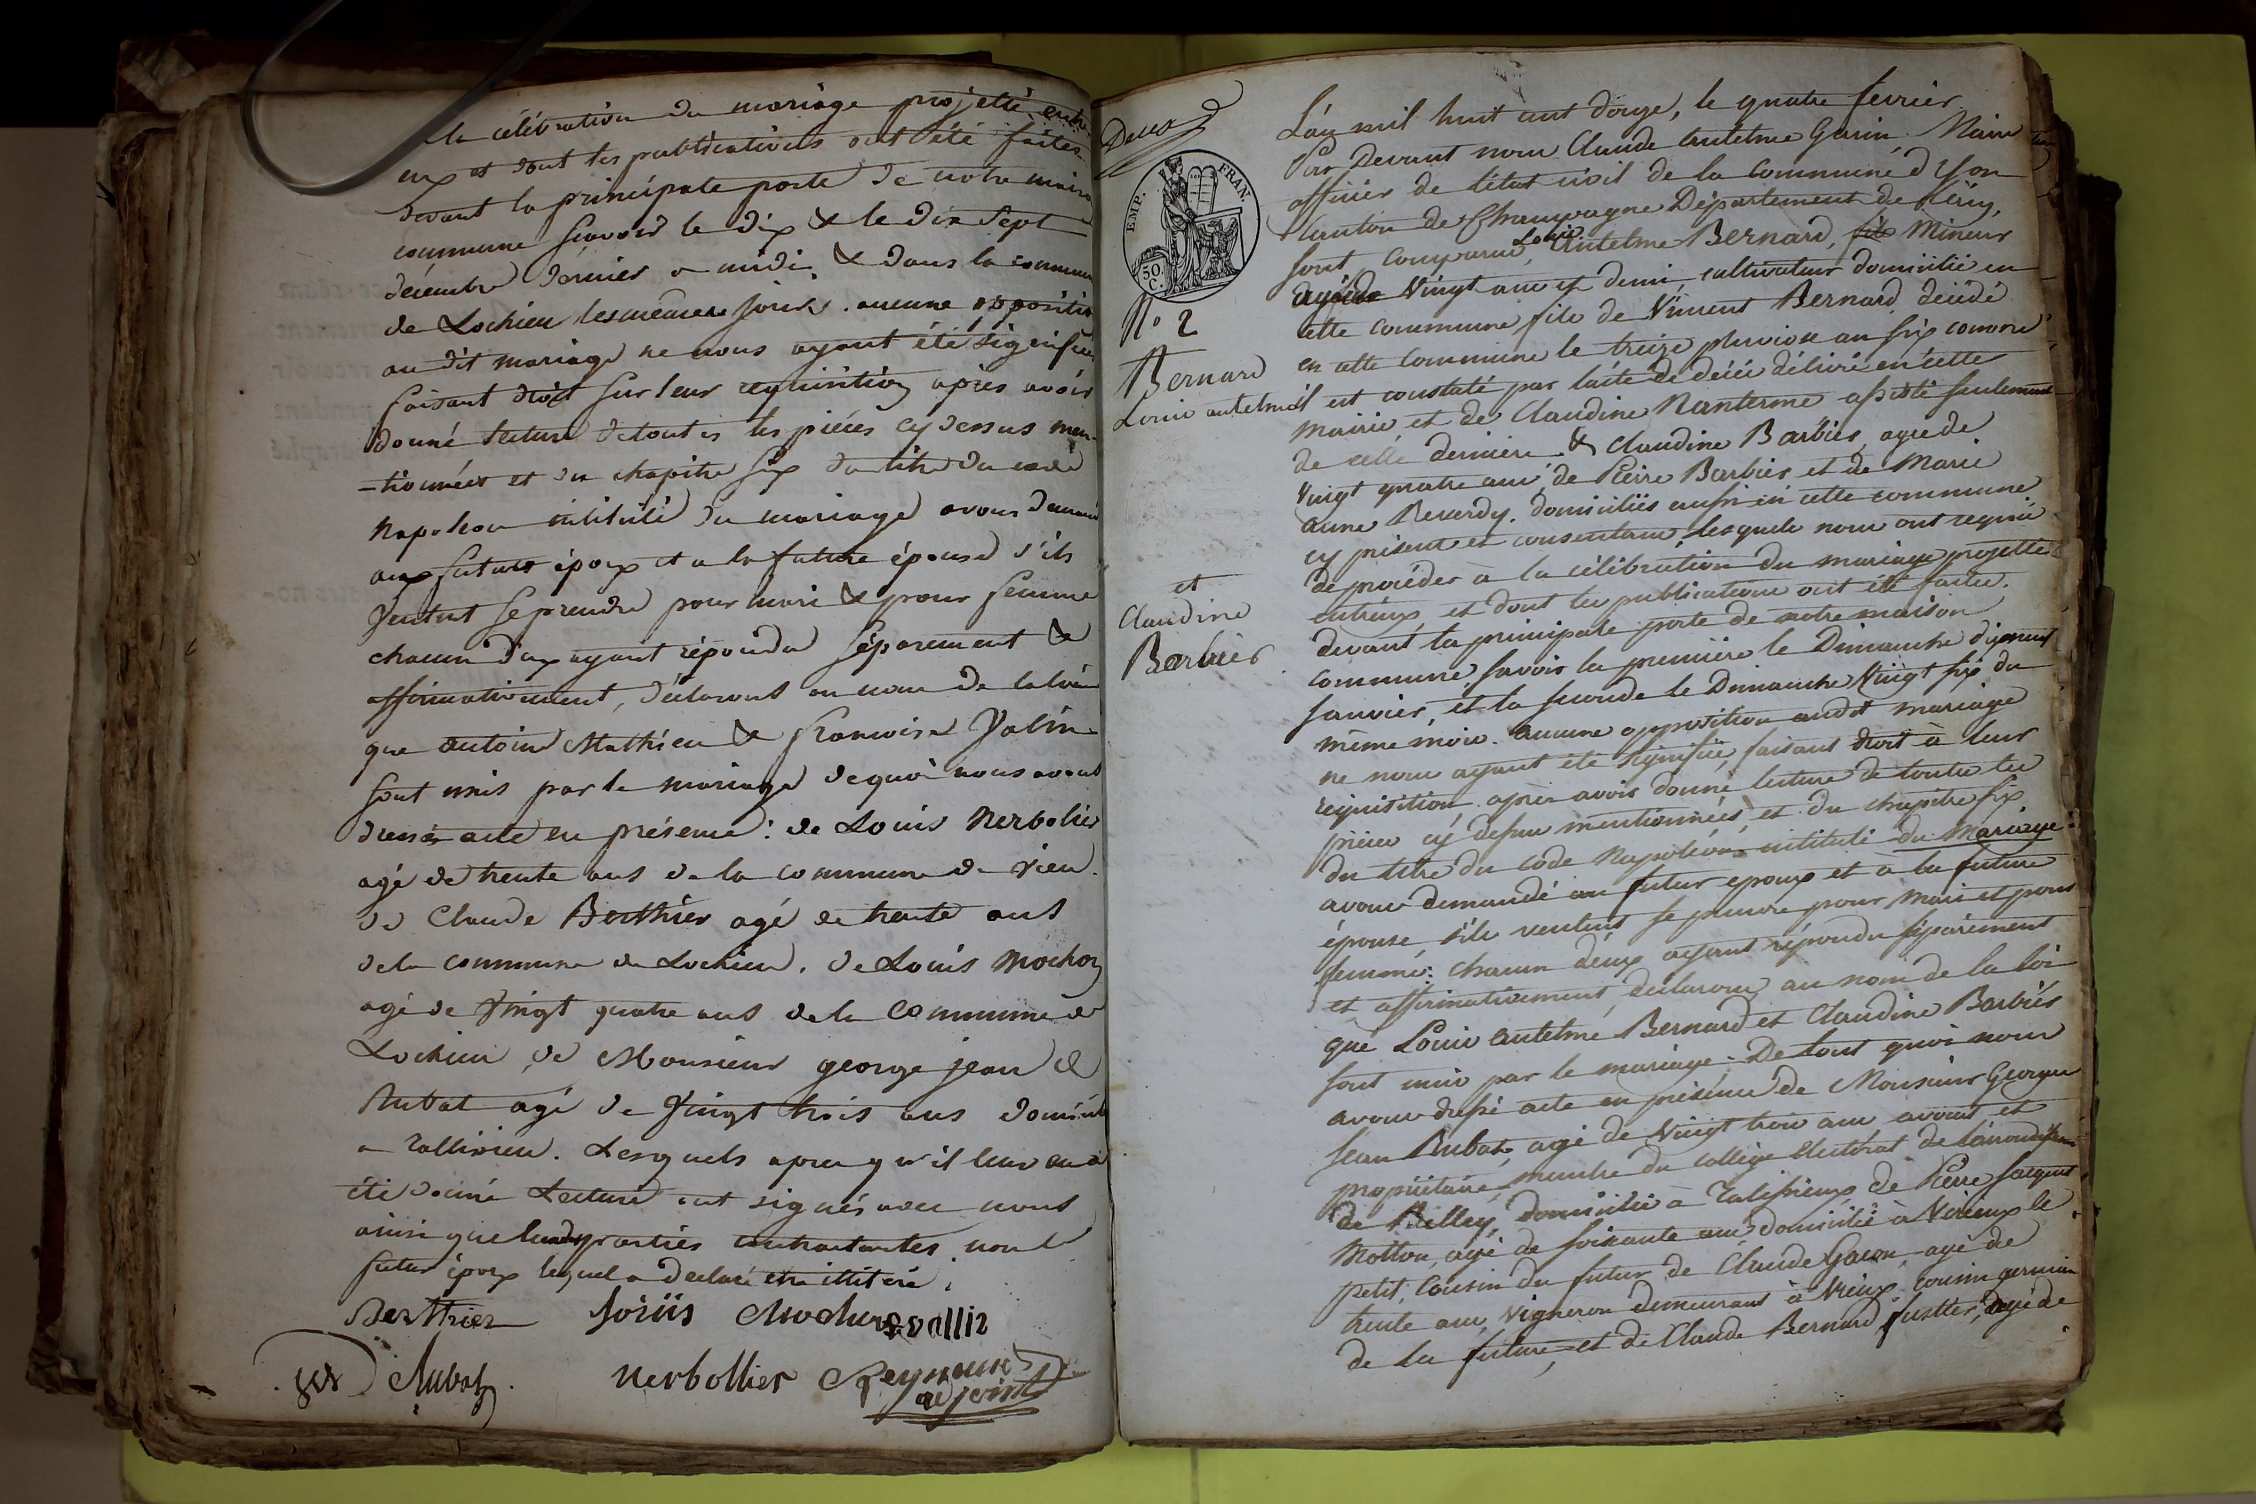 la célébration du mariage projetté entre
eux et dont les publications ont été faites
devant la principale porte de notre maison
commune sçavoir le dix & le dix sept
décembre dernier a midi, & dans la commune
de Lochieu les mêmes jours. aucune oppositio
au dit mariage ne nous ayant été signifiée
faisant droit sur leur requisition après avoir
donné lecture de toutes les pièces cy dessus men-
-tionnées et du chapitre six du titre du code
Napoleon intitulé du mariage avons demandé
aux futurs époux et a la future épouse s'ils
veulent se prendre pour mari & pour femme
chacun d'eux ayant répondu séparement &
affirmativement, déclarons au nom de la loi
que antoine Mathieu & francoise
sont unis par le mariage de quoi nous avons
dressé acte en présence : de Louis Nerbolier
agé de trente ans de la commune de vieu.
de Claude Berthier agé de trente ans
de la commune de Lochieu. de Louis Mochon
agé de vingt quatre ans de la commune de
Lochieu, de Monsieur george jean
Rubat agé de vingt trois ans domicilié
a tallissieu. Lesquels apres qu'il leur en a
été donné Lecture ont signés avec nous
ainsi que les parties contractantes, non le
futur époux lequel a declaré etre illitéré.
Berthier Mochon
Rubat Nerbollier Reymond
adjoint
Deux
EMP. FRAN.
50. C.
N° 2
Bernard
Louis antelme
et
Claudine
Barbier
L'an mil huit cent douze, le quatre fevrier
Par Devant nous Claude Antelme Garin, Maire
officier de l'état civil de la Commune d'yon
Canton de Champagne Département de l'ain,
Louis
sont comparus, Antelme Bernard, fils Mineur
agé de Vingt ans et demi, cultivateur domicilié en
cette commune fils de Vincent Bernard décédé
en cette Commune le treize pluviose an six comme
il est constaté par l'acte de décès délivré en cette
mairie, et de Claudine Nanterme assisté seulement
de cette derniere. & Claudine Barbier, agée de
vingt quatre ans, de Pierre Barbier et de Marie
anne Reverdy. domiciliés aussi en cette commune
cy présents et consentans, lesquels nous ont requis
de procéder à la célébration du mariage projetté
entreux, et dont les publications ont été faites.
devant la principale porte de notre maison
commune, savoir la premiere le Dimanche dix neuf
janvier, et la seconde le Dimanche Vingt six du
même mois. aucune opposition audit mariage
ne nous ayant été signifiée, faisant droit à leur
requisition, après avoir donné lecture de toutes les
pièces cy dessus mentionnées, et du chapitre six
du titre du Code Napoléon intitulé du Mariage
avons demandé au futur epoux et à la future
épouse, s'ils veulent se prendre pour Mari et pour
femme: chacun d'eux ayant répondu séparément
et affirmativement, declarons au nom de la loi
que Louis Antelme Bernard et Claudine Barbier
sont unis par le mariage. De tout quoi nous
avons dressé acte en présence de Monsieur Georges
Jean Rubat, agé de vingt trois ans avocat et
propriétaire, membre du collège électoral de l'arrondissement
de Belley, domicilié à Talissieux de Pierre
Mottou, agé de soixante ans, domicilié à Virieux le
petit, Cousin du futur, de Claude Gacon, agé de
trente ans, vigneron demeurant à Vieux, cousin germain
de la future, et de Claude Bernard, agé de